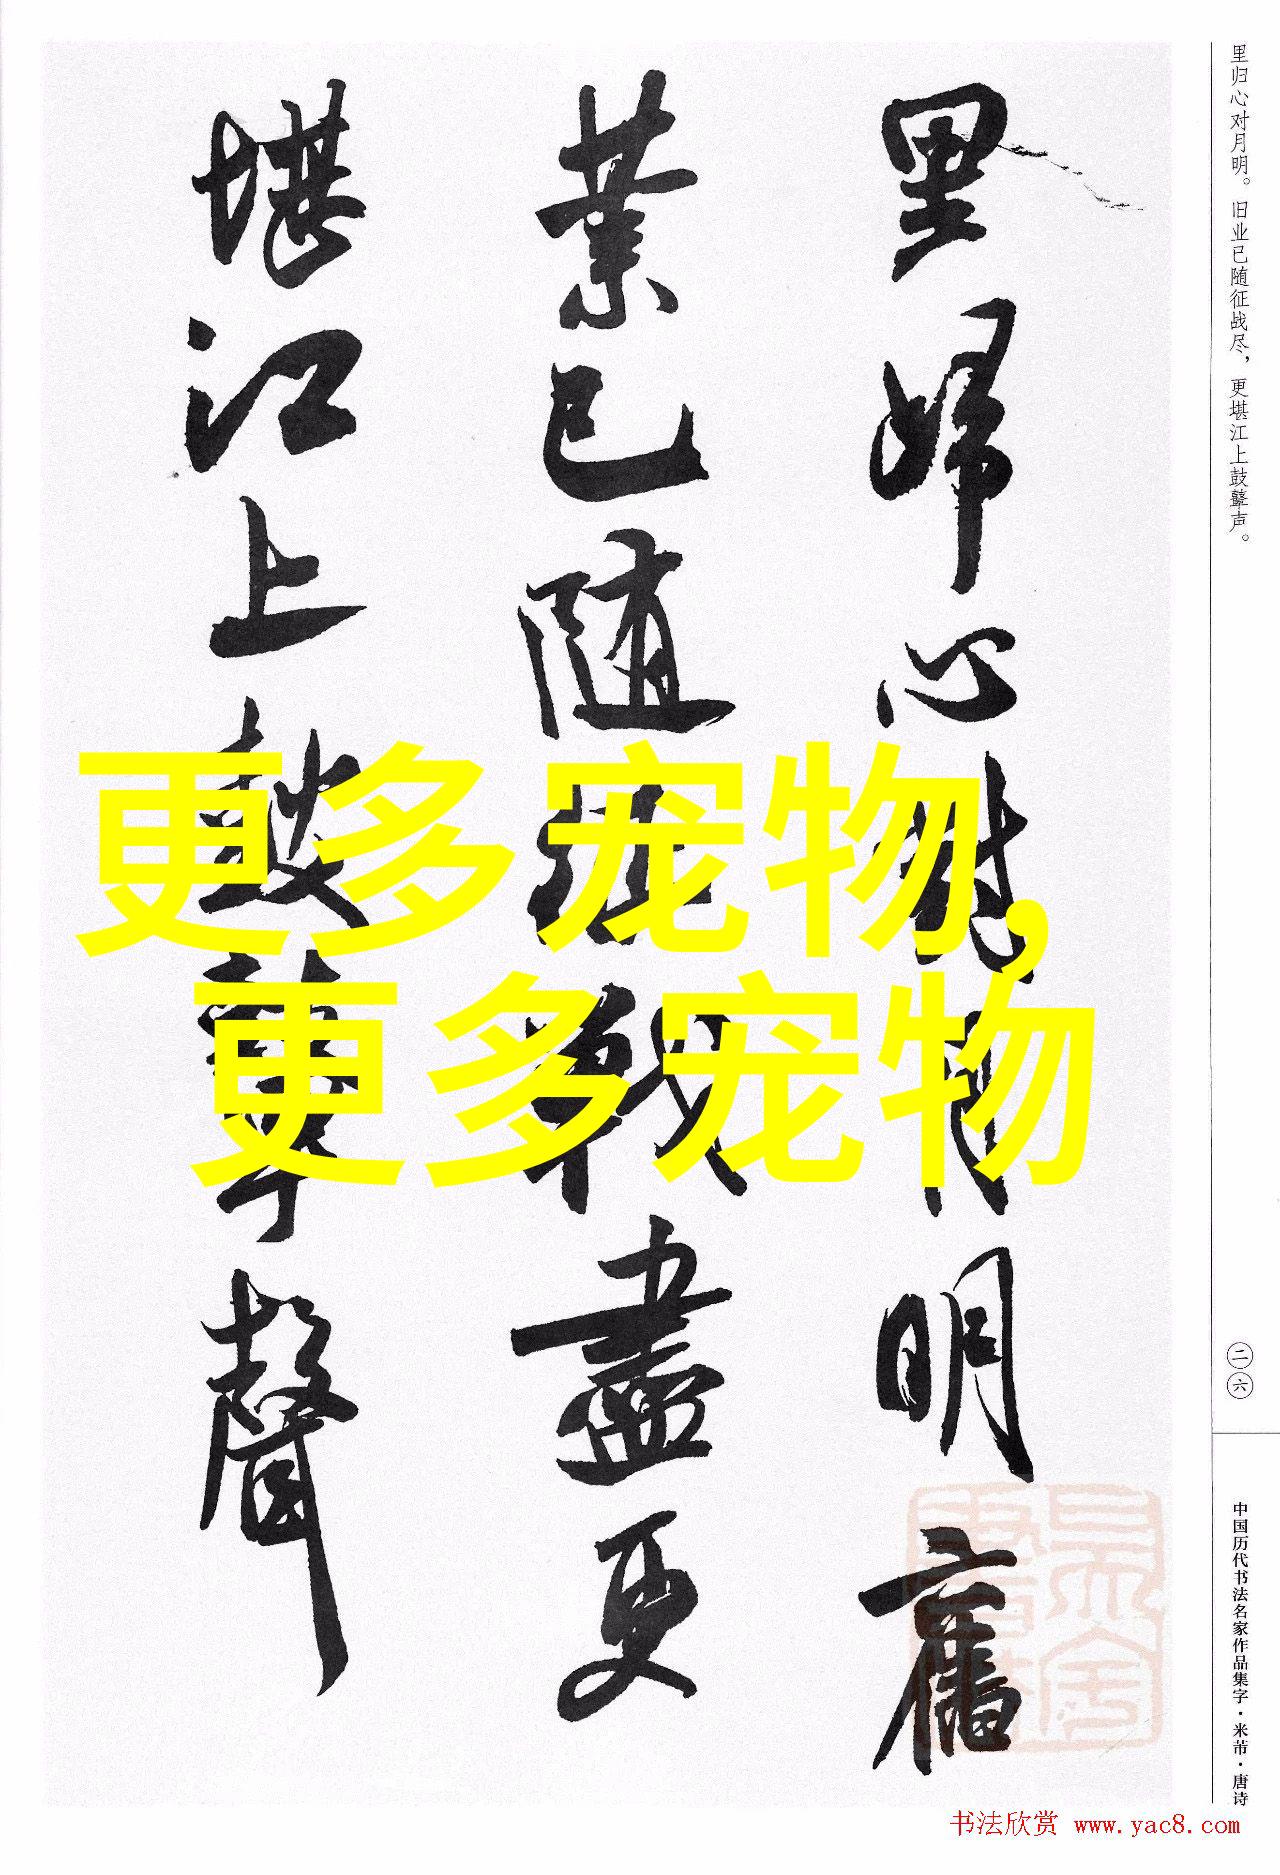 里归心对月明。旧业已随征战尽，更堪江上鼓鼙声。
里歸心對月明舊
業已隨征戰盡更
堪江上鼓鼙聲
更多宠物,
更多宠物
二六
中国历代书法名家作品集字·米芾·唐诗
书法欣赏 www.yac8.com